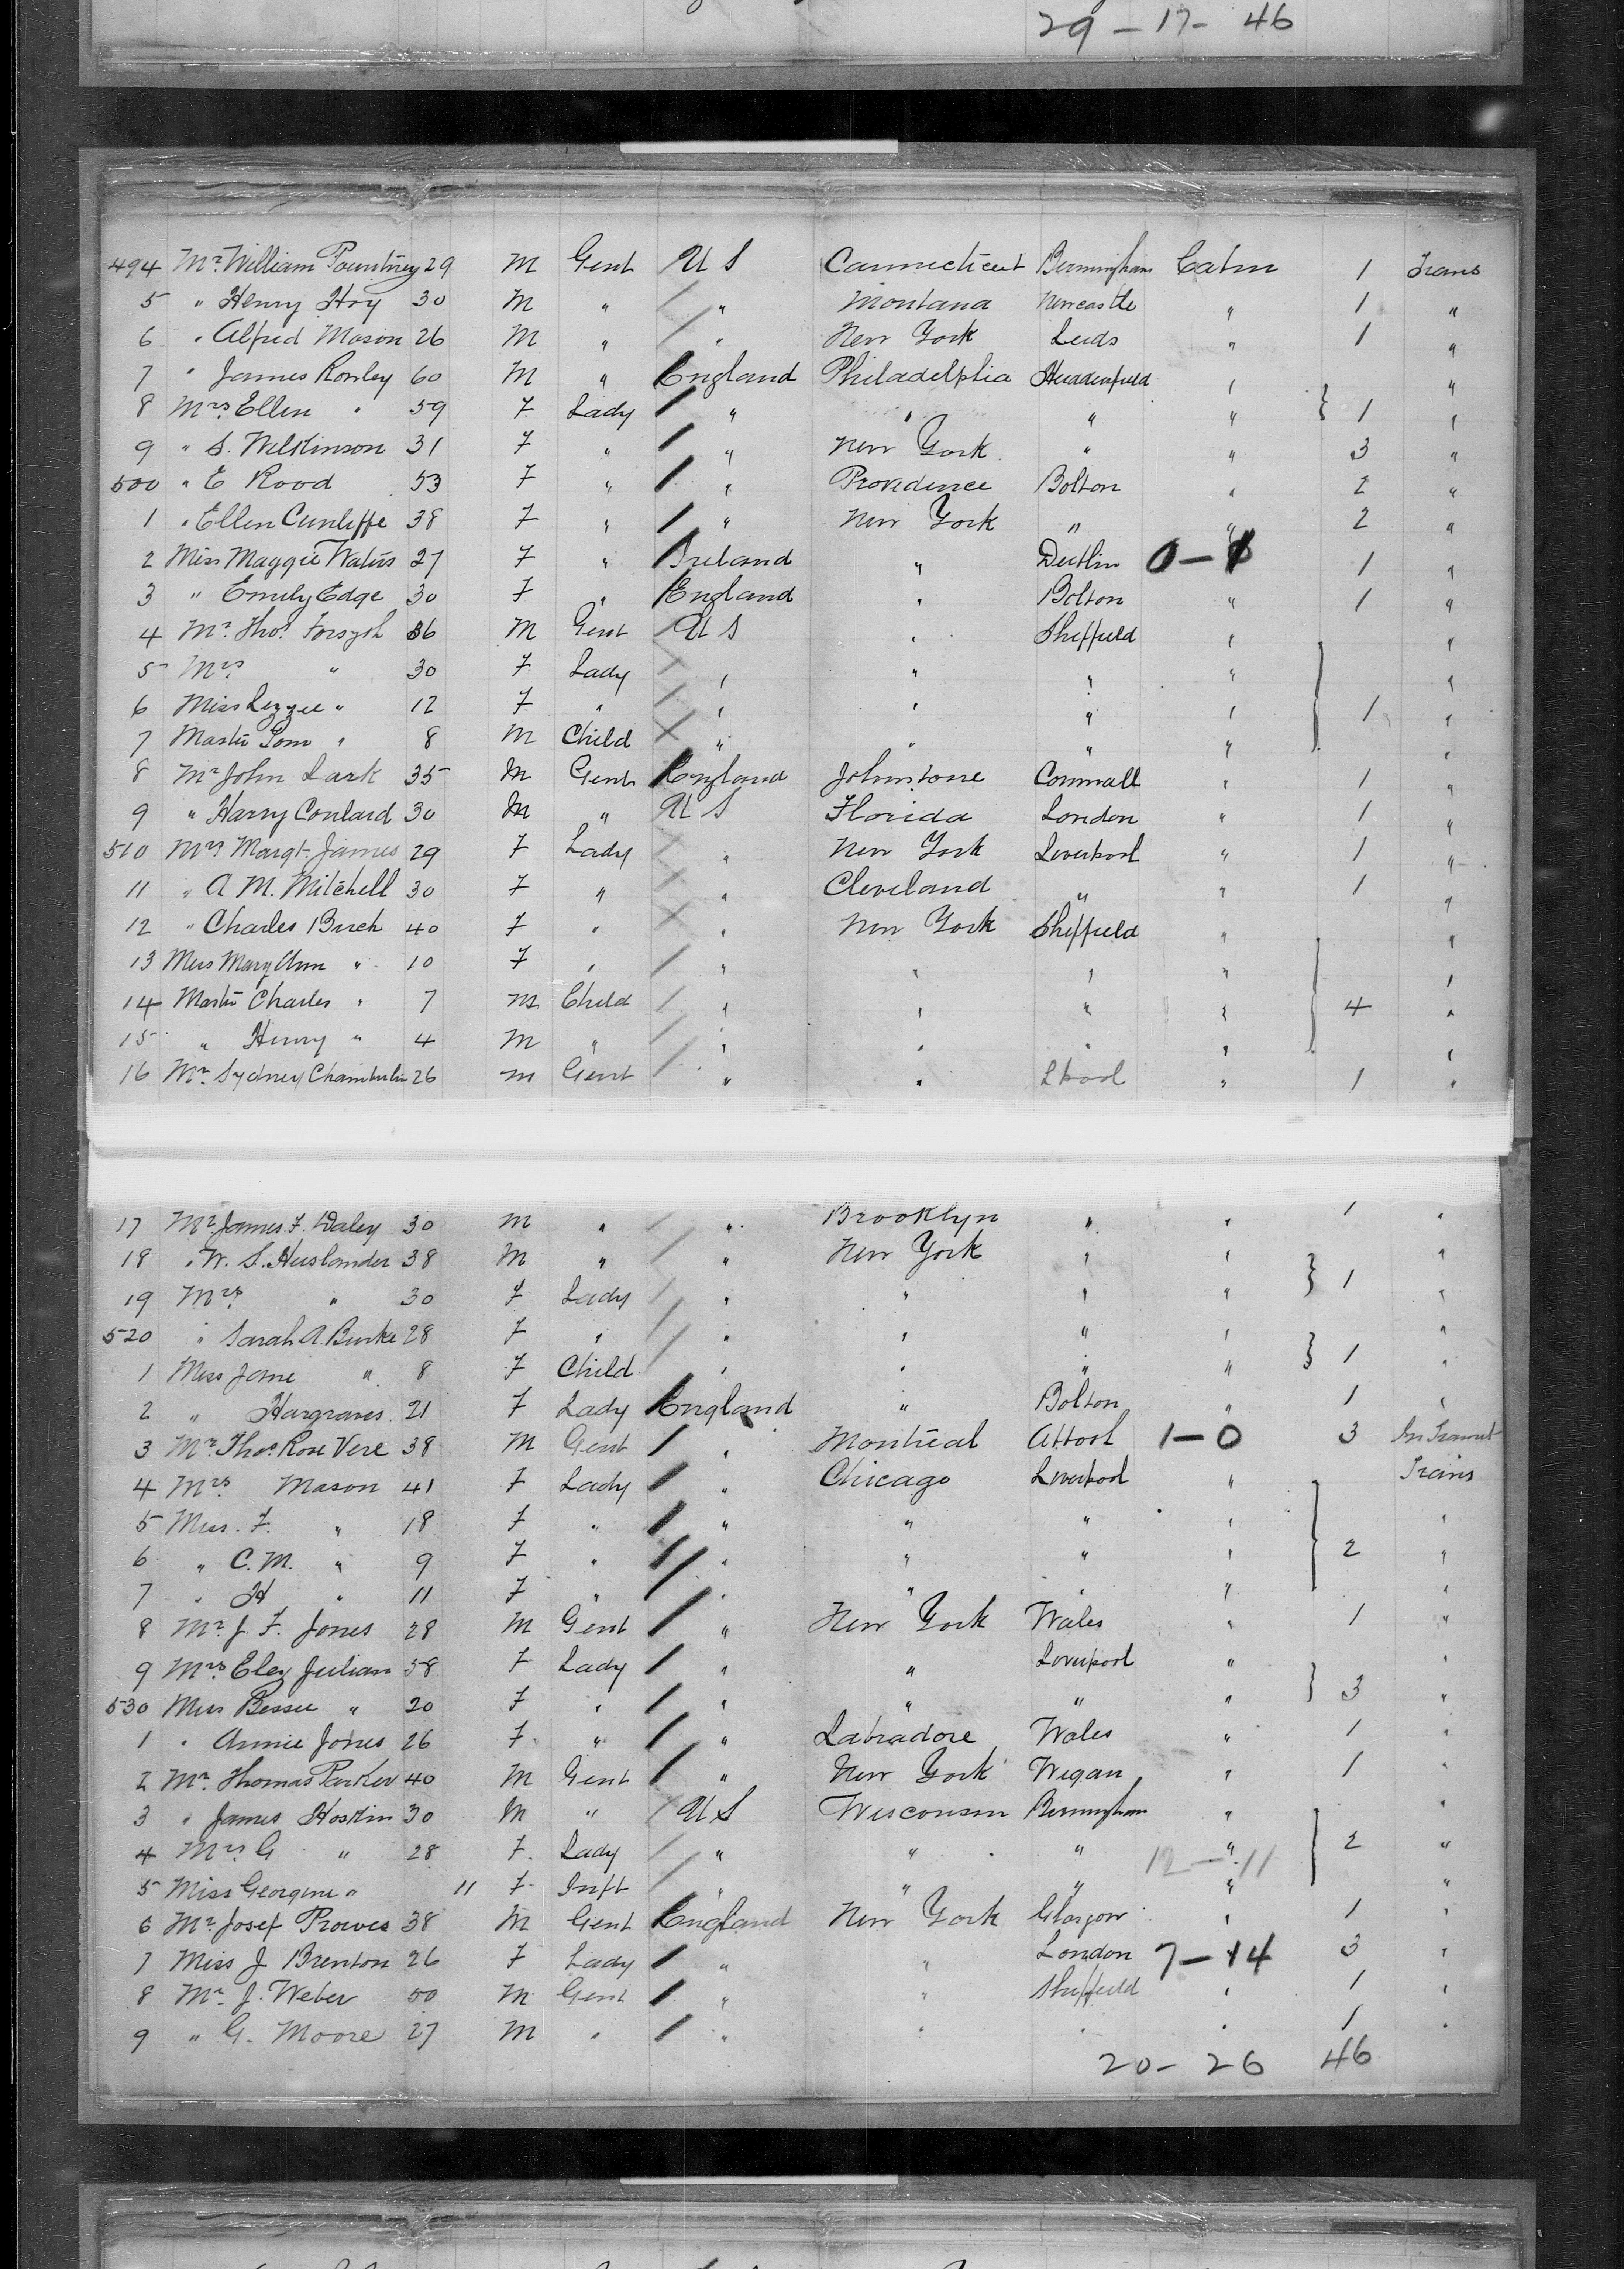 29 - 17 - 46
494 Mr. William Pountney 29 M Gent U S Connecticut Birmingham Cabin 1 Trans
5 " Henry Hoy 30 M " " Montana Newcastle " 1 "
6 " Alfred Mason 26 M " " New York Leeds " 1 "
7 " James Rowley 60 M " England Philadelphia Huddersfield " "
8 Mrs. Ellen " 59 F Lady " " " " } 1 "
9 " S. Wilkinson 31 F " " New York " " 3 "
500 " E Rood 53 F " " Providence Bolton " 2 "
1 " Ellen Cunliffe 38 F " " New York " " 2 "
2 Miss Maggie Waters 27 F " Ireland " Dublin 0-1 1 "
3 " Emily Edge 30 F " England " Bolton " 1 "
4 Mr. Thos. Forsyth 36 M Gent U S " Sheffield " "
5 Mrs. " 30 F Lady " " " " "
6 Miss Lizzie " 12 F " " " " " } 1 "
7 Master Tom " 8 M Child " " " " "
8 Mr John Lark 35 M Gent England Johnstone Cornwall " 1 "
9 " Harry Conlard 30 M " U S Florida London " 1 "
510 Mrs Margt. James 29 F Lady " New York Liverpool " 1 "
11 " A M. Mitchell 30 F " " Cleveland " " 1 "
12 " Charles Birch 40 F " " New York Sheffield " "
13 Miss Mary Ann " 10 F " " " " " "
14 Master Charles " 7 M Child " " " " } 4 "
15 " Henry " 4 M " " " " " "
16 Mr. Sydney Chamberlin 26 M Gent " " Lpool " 1 "
17 Mr James F. Daley 30 M " " Brooklyn " " 1 "
18 " W. S. Huslander 38 M " " New York " " "
19 Mrs. " 30 F Lady " " " " } 1 "
520 " Sarah A. Burke 28 F " " " " " "
1 Miss Jane " 8 F Child " " " " } 1 "
2 " Hargraves 21 F Lady England " Bolton " 1 "
3 Mr. Thos. Rose Vere 38 M Gent " Montreal 1-0 3 In Transit
4 Mrs Mason 41 F Lady " Chicago Liverpool " Trans
5 Miss. F. " 18 F " " " " " "
6 " C. M. " 9 F " " " " " } 2 "
7 " H " 11 F " " " " " "
8 Mr. J. F. Jones 28 M Gent " New York Wales " 1 "
9 Mrs. Eley Julian 58 F Lady " " Liverpool " "
530 Miss Bessie " 20 F " " " " " } 3 "
1 " Annie Jones 26 F " " Labradore Wales " 1 "
2 Mr. Thomas Parker 40 M Gent " New York Wigan " 1 "
3 " James Hoskin 30 M " U S Wisconsin Birmingham " "
4 Mrs. G " 28 F Lady " " " " } 2 "
12 - 11
5 Miss Georgine " 11 F Inft " " " " "
6 Mr. Josef Prowes 38 M Gent England New York Glasgow " 1 "
7 Miss J Brenton 26 F Lady " " London 7-14 3 "
8 Mr. J. Weber 50 M Gent " " Sheffield " 1 "
9 " G. Moore 27 M " " " " " 1 "
20 - 26 46